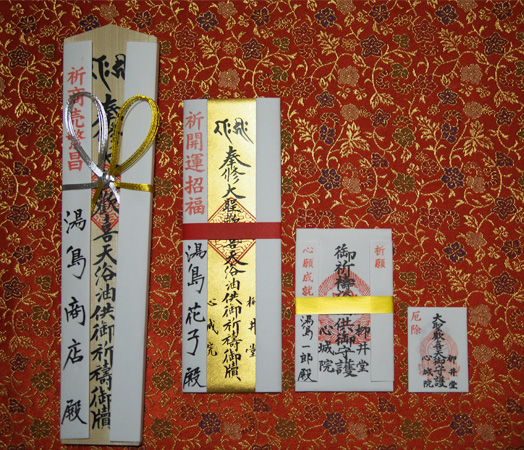 奉 歡喜天浴油供御祈禱御牘
祈商売繁昌
湯島商店 殿
奉修大聖歡喜天浴油供御祈禱御牘
柳井堂
心城院
祈開運招福
湯島花子殿
祈願
御祈禱 供御守護
柳井堂
心城院
心願成就
湯島一郎殿
大聖歡喜天御守護
柳井堂
心城院
厄除